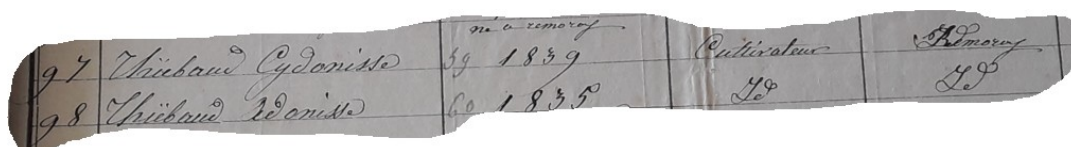 né a remoray
97 Thiebaud Cydonisse 39 1839 Cultivateur Rémoray
98 Thiebaud Adonisse 60 1835 Id Id